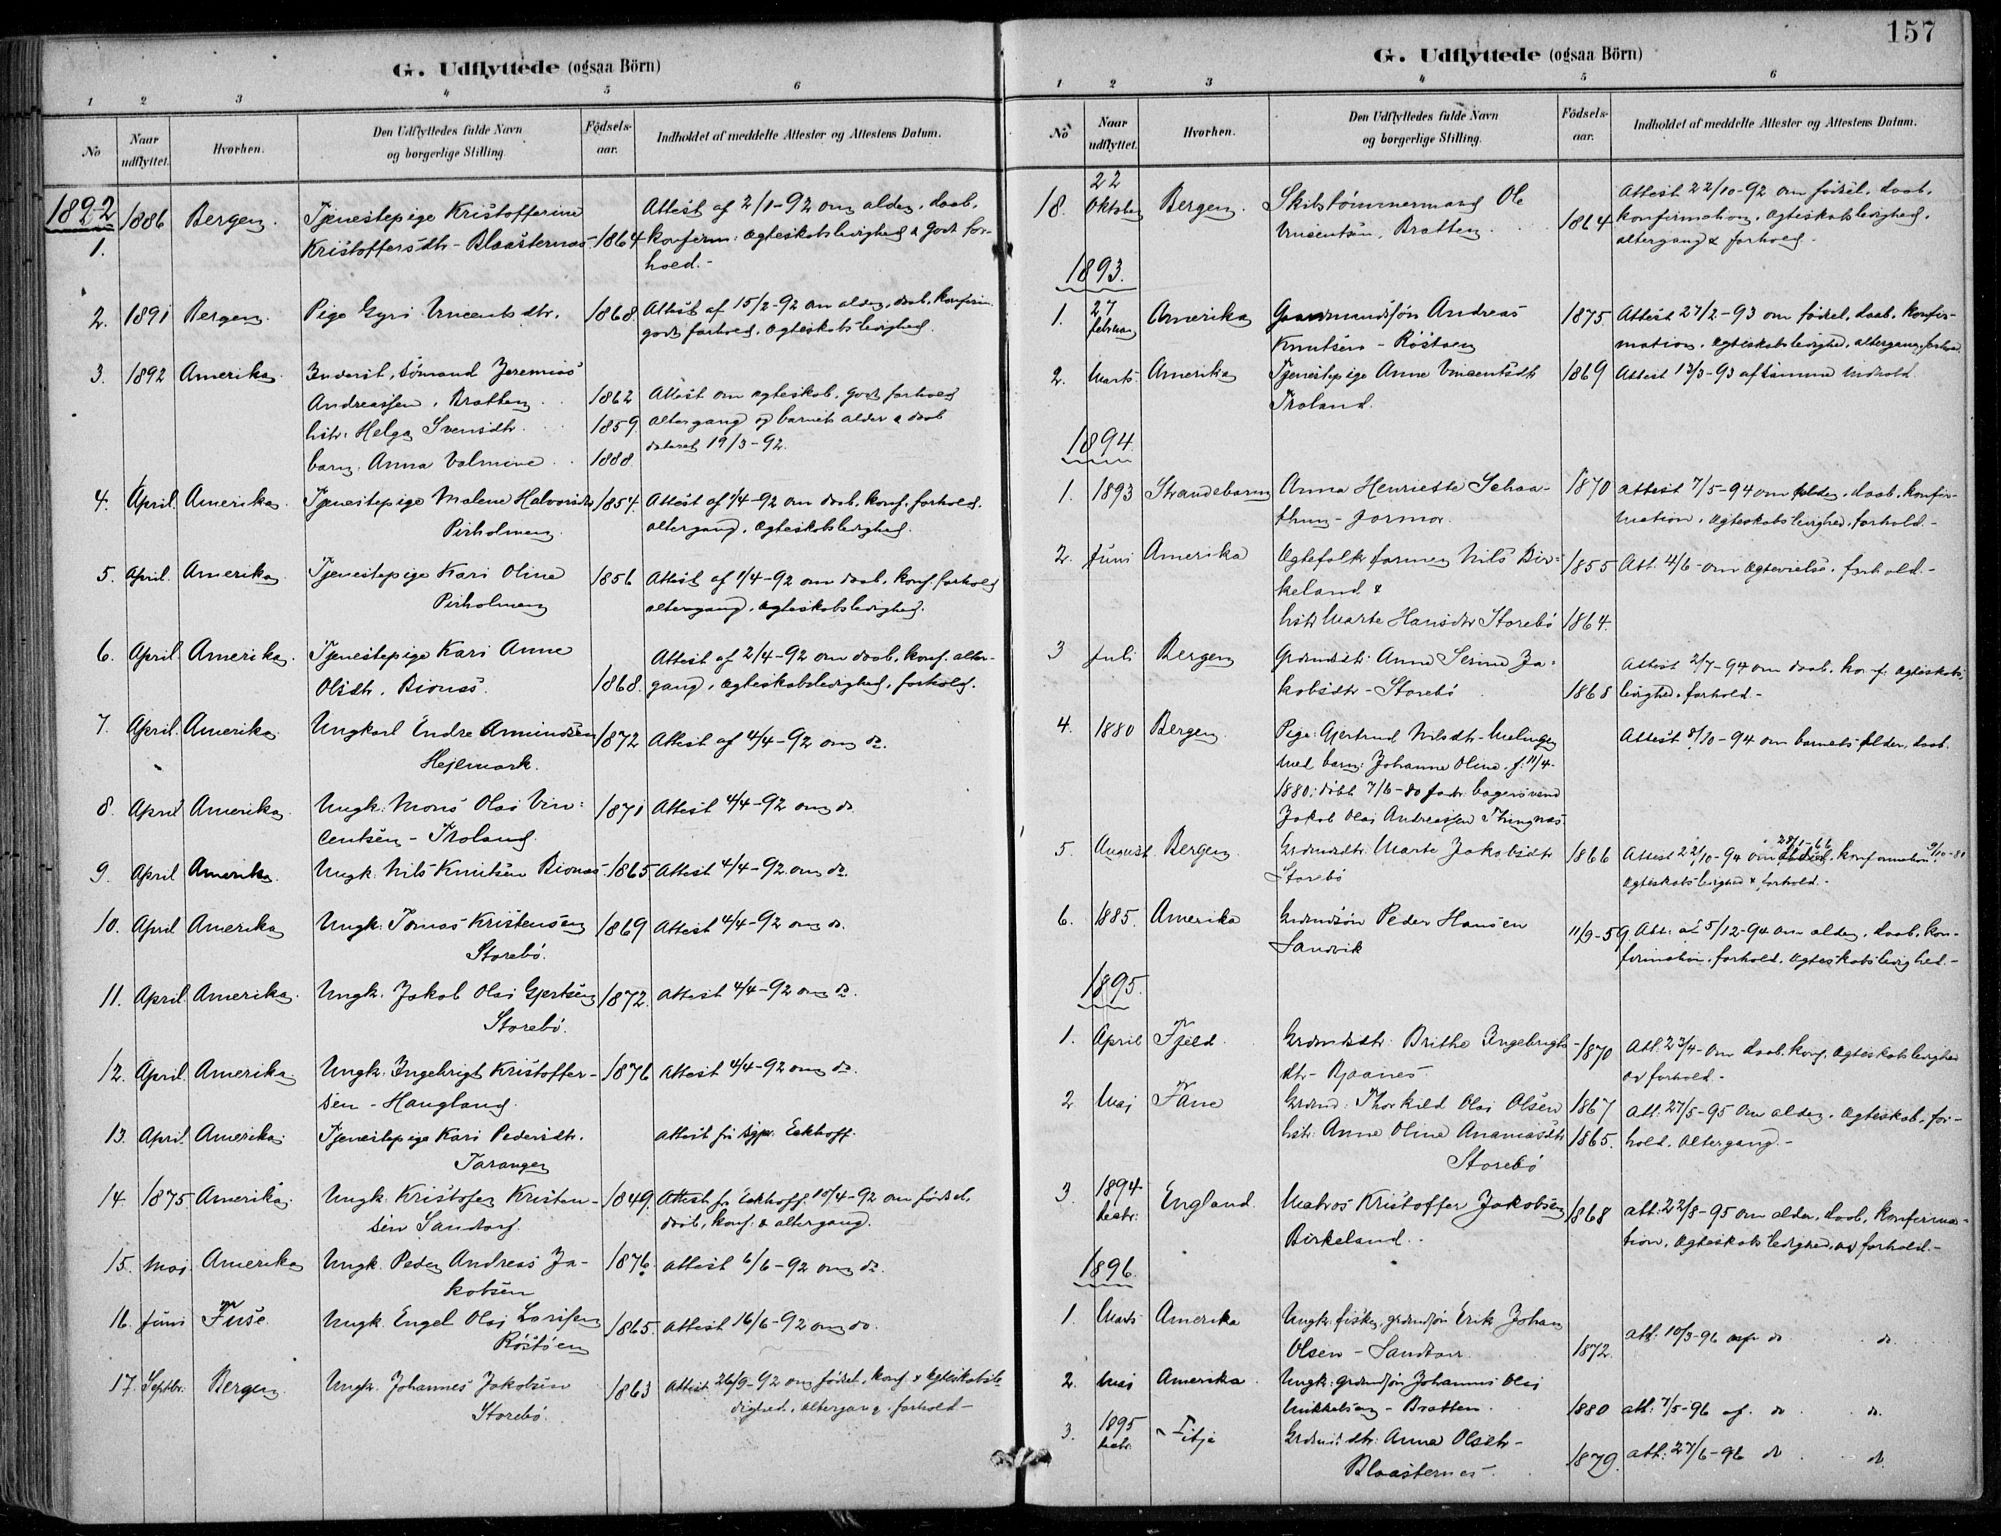 G. Udflyttede (ogsaa Börn)
1 2 3 4 5 6
No Naar udflyttet. Hvorhen. Den Udflyttedes fulde Navn og borgerlige Stilling. Födsels-aar. Indholdet af meddelte Attester og Attestens Datum.
1892
1. 1886 Bergen Tjenestepige Kristofferine
Kristoffersdtr - Blaasternæs 1864
Attest af 2/1-92 om alder, daab,
konfirm: ægteskabsledighed & godt for-
hold.-
2. 1891 Bergen Pige Gyri Vincentsdtr. 1868
Attest af 15/2-92 om alder, daab, konfirm.
godt forhold, ægteskabsledighed.
3. 1892 Amerika Inderst, sömand Jeremias
Andreassen, Bratten 1862
hstr: Helga Svensdtr 1859
barn: Anna Valmine 1888.
Attest om ægteskab, godt forhold
altergang og barnets alder & daab
dateret 19/3-92.
4. April Amerika Tjenestepige Malene Halvorsdtr 1854
Pirholmen
Attest af 1/4-92 om daab, konf. forhold.
altergang, ægteskabsledighed.
5. April Amerika Tjenestepige Kari Oline 1856
Pirholmen
Attest af 1/4-92 om daab, konf. forhold
altergang, ægteskabsledighed.
6. April Amerika Tjenestepige Kari Anne
Olsdtr, Bionæs. 1868.
Attest af 2/4-92 om daab, konf. alter-
gang, ægteskabsledighed, forhold.
7. April Amerika Ungkarl Endre Amundsen 1872 Attest af 4/4-92 om do.
Hejemark.
8. April Amerika Ungk: Mons Olai Vin- 1871 Attest 4/4-92 om do
centsen - Troland.
9. April Amerika Ungk. Nils Knutsen Bionæs 1865 Attest 4/4-92 om do.
10. April Amerika Ungk. Tomas Kristensen 1869 Attest 4/4-92 om do.
Storebö.
11. April Amerika. Ungk. Jakob Olai Gjertsen 1872. Attest 4/4-92 om do.
Storebö.
12. April Amerika Ungk. Ingebrigt Kristoffer- 1876 Attest 4/4-92 om do.
sen - Haugland.
13. April Amerika Tjenestepige Kari Pedersdtr. attest fra sgpr. Eckhoff.
Taranger
14. 1875 Amerika. Ungk. Kristofer Kristen- 1849. Attest fr Eckhoff 10/4-92 om födsel,
sen Sandtorf. daab, konf. & altergang.
15. Mai Amerika Ungk. Peder Andreas Ja- 1876 attest 6/6-92 om do.
kobsen
16. Juni Fuse. Ungk. Engel Olai Larsen 1865. attest 16/6-92 om do.
Röstöen
17. Septbr. Bergen Ungk. Johannes Jakobsen 1863 Attest 26/9-92 om födsel, konf. & ægteskabsle-
Storebö. dighed, altergang, forhold-
157
G. Udflyttede (ogsaa Börn)
1 2 3 4 5 6
No Naar udflyttet. Hvorhen. Den Udflyttedes fulde Navn og borgerlige Stilling. Födsels-aar. Indholdet af meddelte Attester og Attestens Datum.
18. 22 Oktober Bergen. Skibstömmermand Ole
Vincentsen, Bratten. 1864
Attest 22/10-92 om födsel, daab,
konfirmation, ægteskabsledighed,
altergang & forhold.
1893.
1. 27 februar Amerika Gaardmandssön Andreas 1875. Attest 27/2-93 om födsel, daab, konfir-
Knutsen - Röstöen mation, ægteskabsledighed, altergang, forhold.
2. Marts Amerika Tjenestepige Anne Vincentsdtr 1869 Attest 13/3-93 af samme indhold.
Troland.
1894.
1. 1893 Strandebarm Anna Henriette Schaa- 1870 attest 7/5-94 om alder, daab, konfir-
thun - mation, ægteskabsledighed, forhold.-
2. Juni Amerika Ægtefolk farmer Nils Bir- 1855 Att. 4/6 - om ægtevielse, forhold.-
keland &
hstr Marte Hansdtr Storebö 1864.
3 Juli Bergen Grdmdstr: Anne Serine Ja-
kobsdtr - Storebö 1868
Attest 2/7-94 om daab, konf. ægteskabs-
ledighed, forhold.-
4. 1880 Bergen Pige: Gjertrud Nilsdtr Melingen Attest 8/10-94 om barnets alder, daab.
med barn: Johanne Oline, f. 11/4-
1880, döbt 7/6-80 fadr: bagersvend
Jakob Olai Andreassen Thingnæs.
5. August Bergen Grdmdstr. Marte Jakobsdtr 1866 Attest 22/10-94 om födsel, konfirmation 3/10-80
Storebö ægteskabsledighed & forhold.-
6. 1885. Amerika Grdmdssön Peder Hansen 11/9-59 Att: af 5/12-94 om alder, daab, kon-
Sandvik firmation, forhold, ægteskabsledighed.-
1895.
1. April Fjeld. Grdmdstr: Brithe Ingebrigts- 1870 Att. 23/4- om daab, konf. ægteskabsledighed
dtr - Bjaanes. & forhold.-
2 Mai Fane Grdmd: Thorkild Olai Olsen 1867 Att. 27/5-95 om alder, ægteskab, for-
hstr: Anne Oline Ananiasdtr 1865. hold, altergang.-
Storebö
3. 1894 England. Matros Kristoffer Jakobsen 1868 att: 22/8-95 om alder, daab, konfirma-
Birkeland. tion, ægteskabsledighed, og forhold.-
1896.
1. Marts Amerika Ungk: fisker, grdmdssön Erik Johan
Olsen - Sandtorv. 1872. att: 10/3-96 do do
2. Mai Amerika. Ungk: grdmdssön Johannes Olai
Mikkelsen - Bratten. 1880 att: 7/5-96 af. do do.
3. 1895 Fitje Grdmdsdtr: Anna Olsdtr-
Blaasternes. 1879. att: 27/6-96 do do.